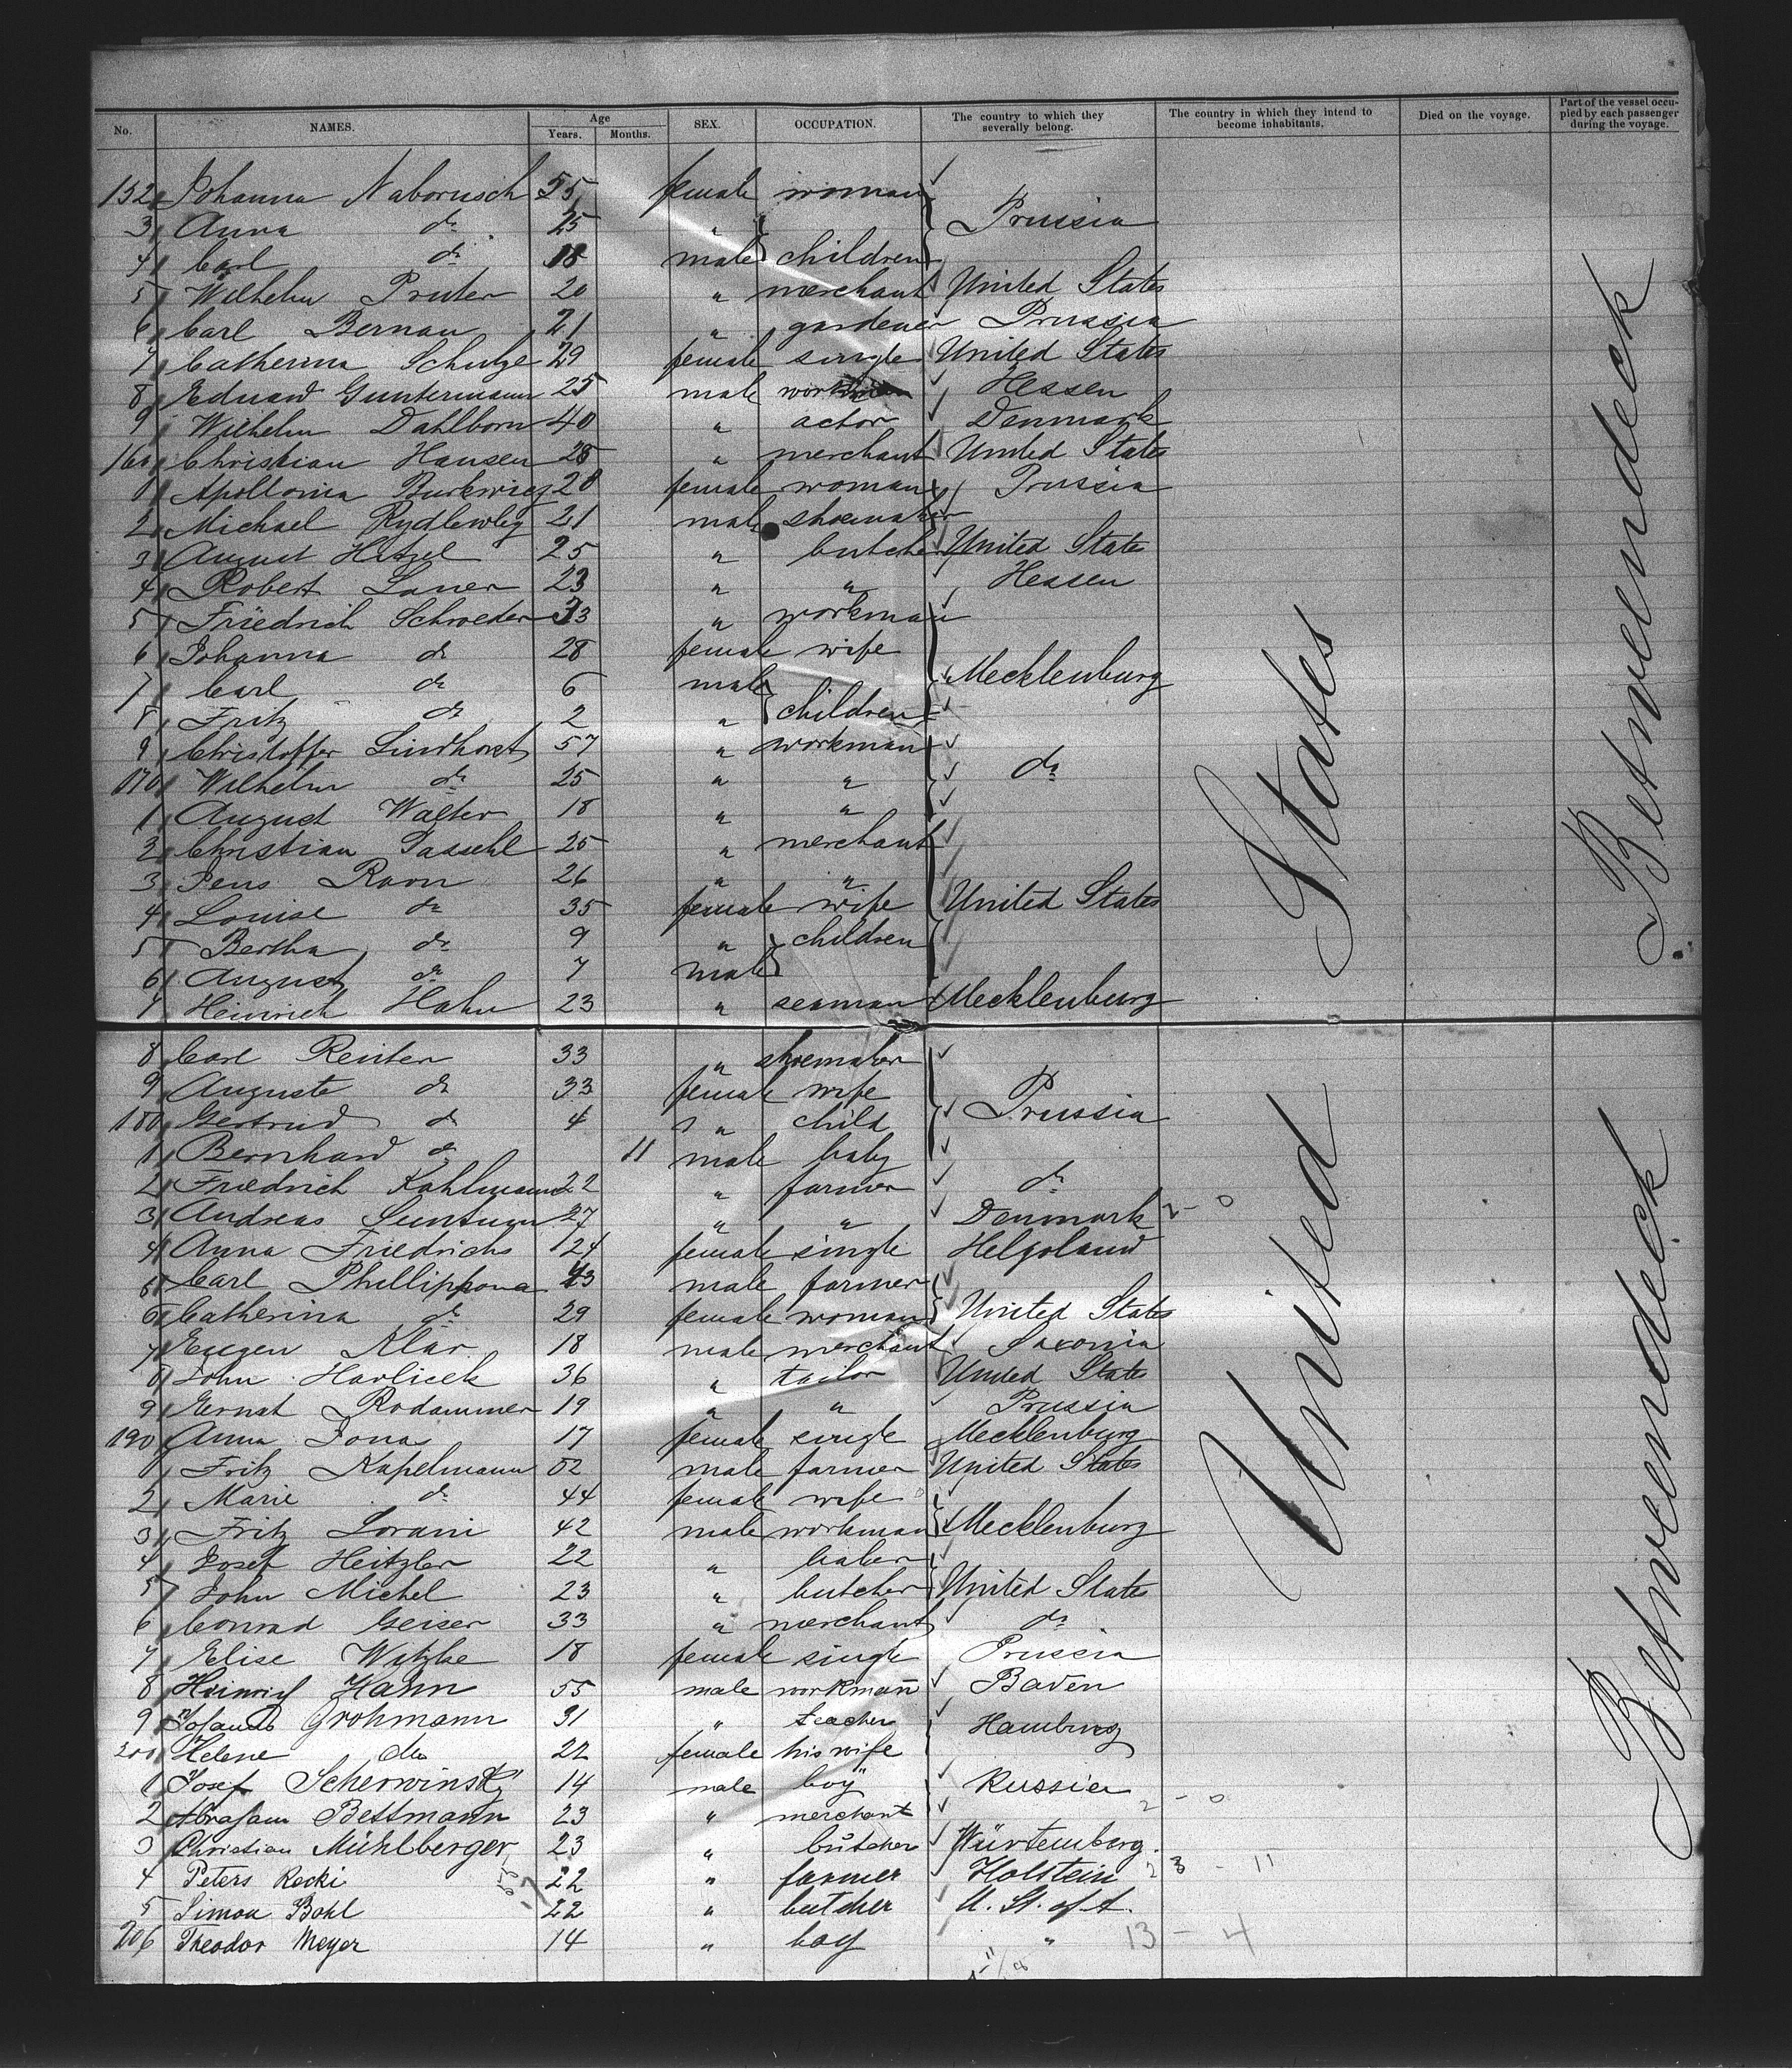 No. NAMES. Age Years. Months. SEX. OCCUPATION. The country to which they severally belong. The country in which they intend to become inhabitants. Died on the voyage. Part of the vessel occupied by each passenger during the voyage.
152 Johanna Naborusch 55 female woman
3 Anna do 25 " Prussia
4 Carl do 18 male children
5 Wilhelm Pruter 20 " merchant United States
6 Carl Bernau 21 " gardener Prussia
7 Catherina Schulze 29 female single United States
8 Eduard Guntermann 25 male workman Hessen
9 Wilhelm Dahlborn 40 " actor Denmark
160 Christian Hansen 28 " merchant United States
1 Apollonia 28 female woman Prussia
2 Michael 21 male shoemaker
3 August Hetzel 25 " butcher United States
4 Robert Lauer 23 " " Hessen
5 Friedrich Schroeder 33 " workman
6 Johanna do 28 female wife
7 Carl do 6 male Mecklenburg
8 Fritz do 2 " children
9 Christoffer Lindhorst 57 " workman
170 Wilhelm do 25 " " do
1 August Walter 18 " "
2 Christian 25 " merchant
3 Jens Raon 26 " "
4 Louise do 35 female wife United States
5 Bertha do 9 " children
6 August do 7 male
7 Heinrich Hahn 23 " seaman Mecklenburg
8 Carl Reuter 33 " shoemaker
9 Auguste do 33 female wife
180 Gertrud do 4 " child Prussia
1 Bernhard do 11 male baby
2 Friedrich Kahlmann 22 " farmer do
3 Andreas 27 " " Denmark 2 - 0
4 Anna Friedrichs 24 female single Helgoland
5 Carl Phillippona 43 male farmer
6 Catherina do 29 female woman United States
7 Eugen Klar 18 male merchant Saxonia
8 John Havlicek 36 " tailor United States
9 Ernst Rodammer 19 " " Prussia
190 Anna Jonas 17 female single Mecklenburg
1 Fritz Kapelmann 52 male farmer United States
2 Marie do 44 female wife
3 Fritz Lorani 42 male workman Mecklenburg
4 Josef Heitzler 22 " baker
5 John Michel 23 " butcher United States
6 Conrad Geiser 33 " merchant do
7 Elise Watzke 18 female single Prussia
8 Heinrich Hahn 55 male workman Baden
9 Grohmann 31 " teacher Hamburg
200 Helene do 22 female his wife
1 Josef Scherwinsky 14 male boy Russia
2 Abraham Bettmann 23 " merchant 2 - 0
3 Christian Mühlberger 23 " butcher Würtemberg.
4 Peters Recki 22 " farmer Holstein 3 - 11
5 Simon Bohl 22 " butcher U. St. of A.
206 Theodor Meyer 14 " boy " 13 - 4
United States
Betweendeck
Betweendeck